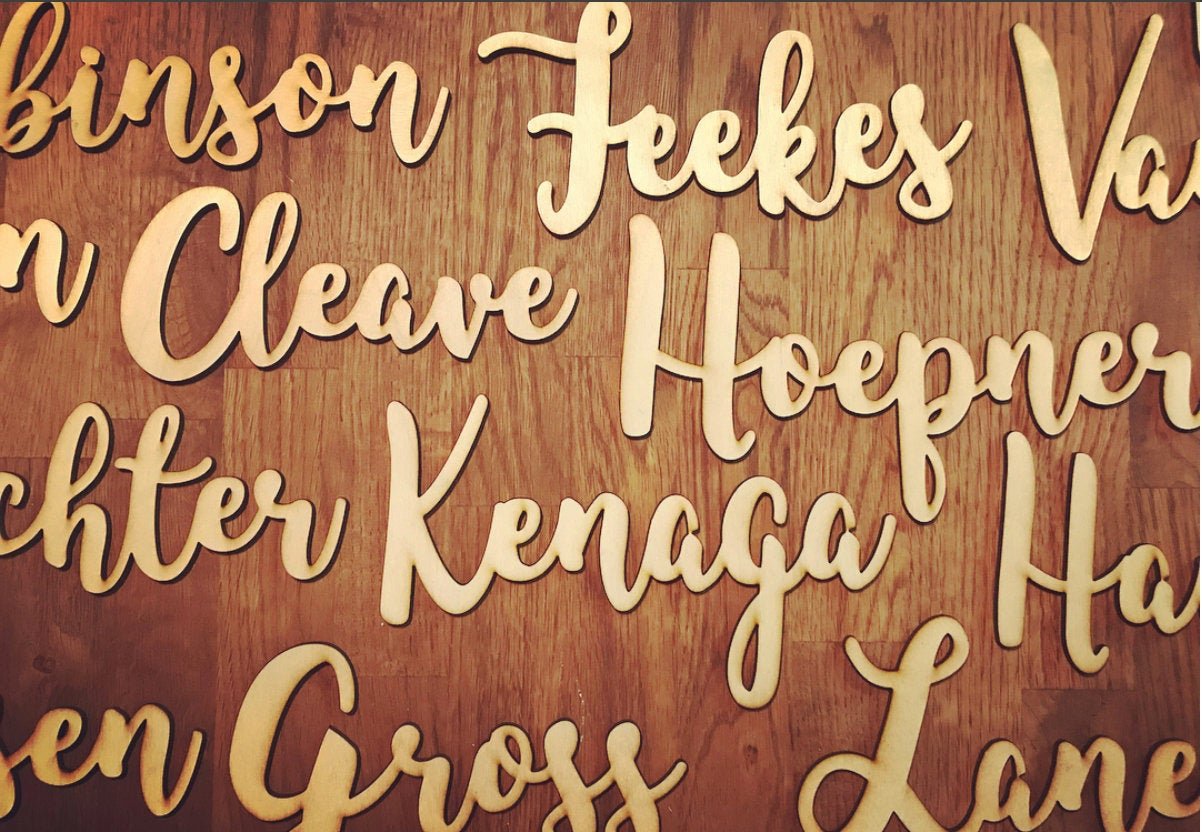 binson Feekes Va
n Cleave Hoepner
chter Kenaga Ha
sen Gross Lane